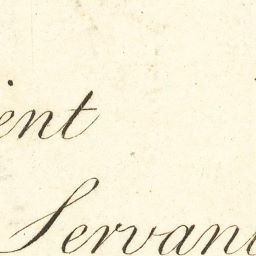 ent
Servant